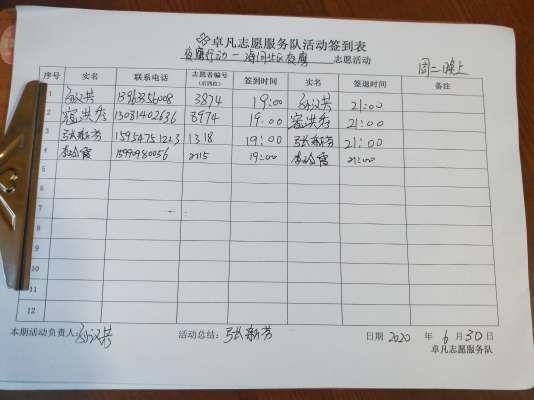 卓凡志愿服务队活动签到表
志愿活动 周二晚上
序号 实名 联系电话 志愿者编号(后四位) 签到时间 实名 签退时间 备注
1 孙汉芳 3874 19:00 孙汉芳 21:00
2 宿洪秀 13081402636 8974 19:00 宿洪秀 21:00
3 张新芳 1318 19:00 张新芳 21:00
4 2115 19:00 21:00
5
6
7
8
9
10
11
12
本期活动负责人:孙汉芳 活动总结:张新芳 日期 2020 年 6 月 30 日
卓凡志愿服务队